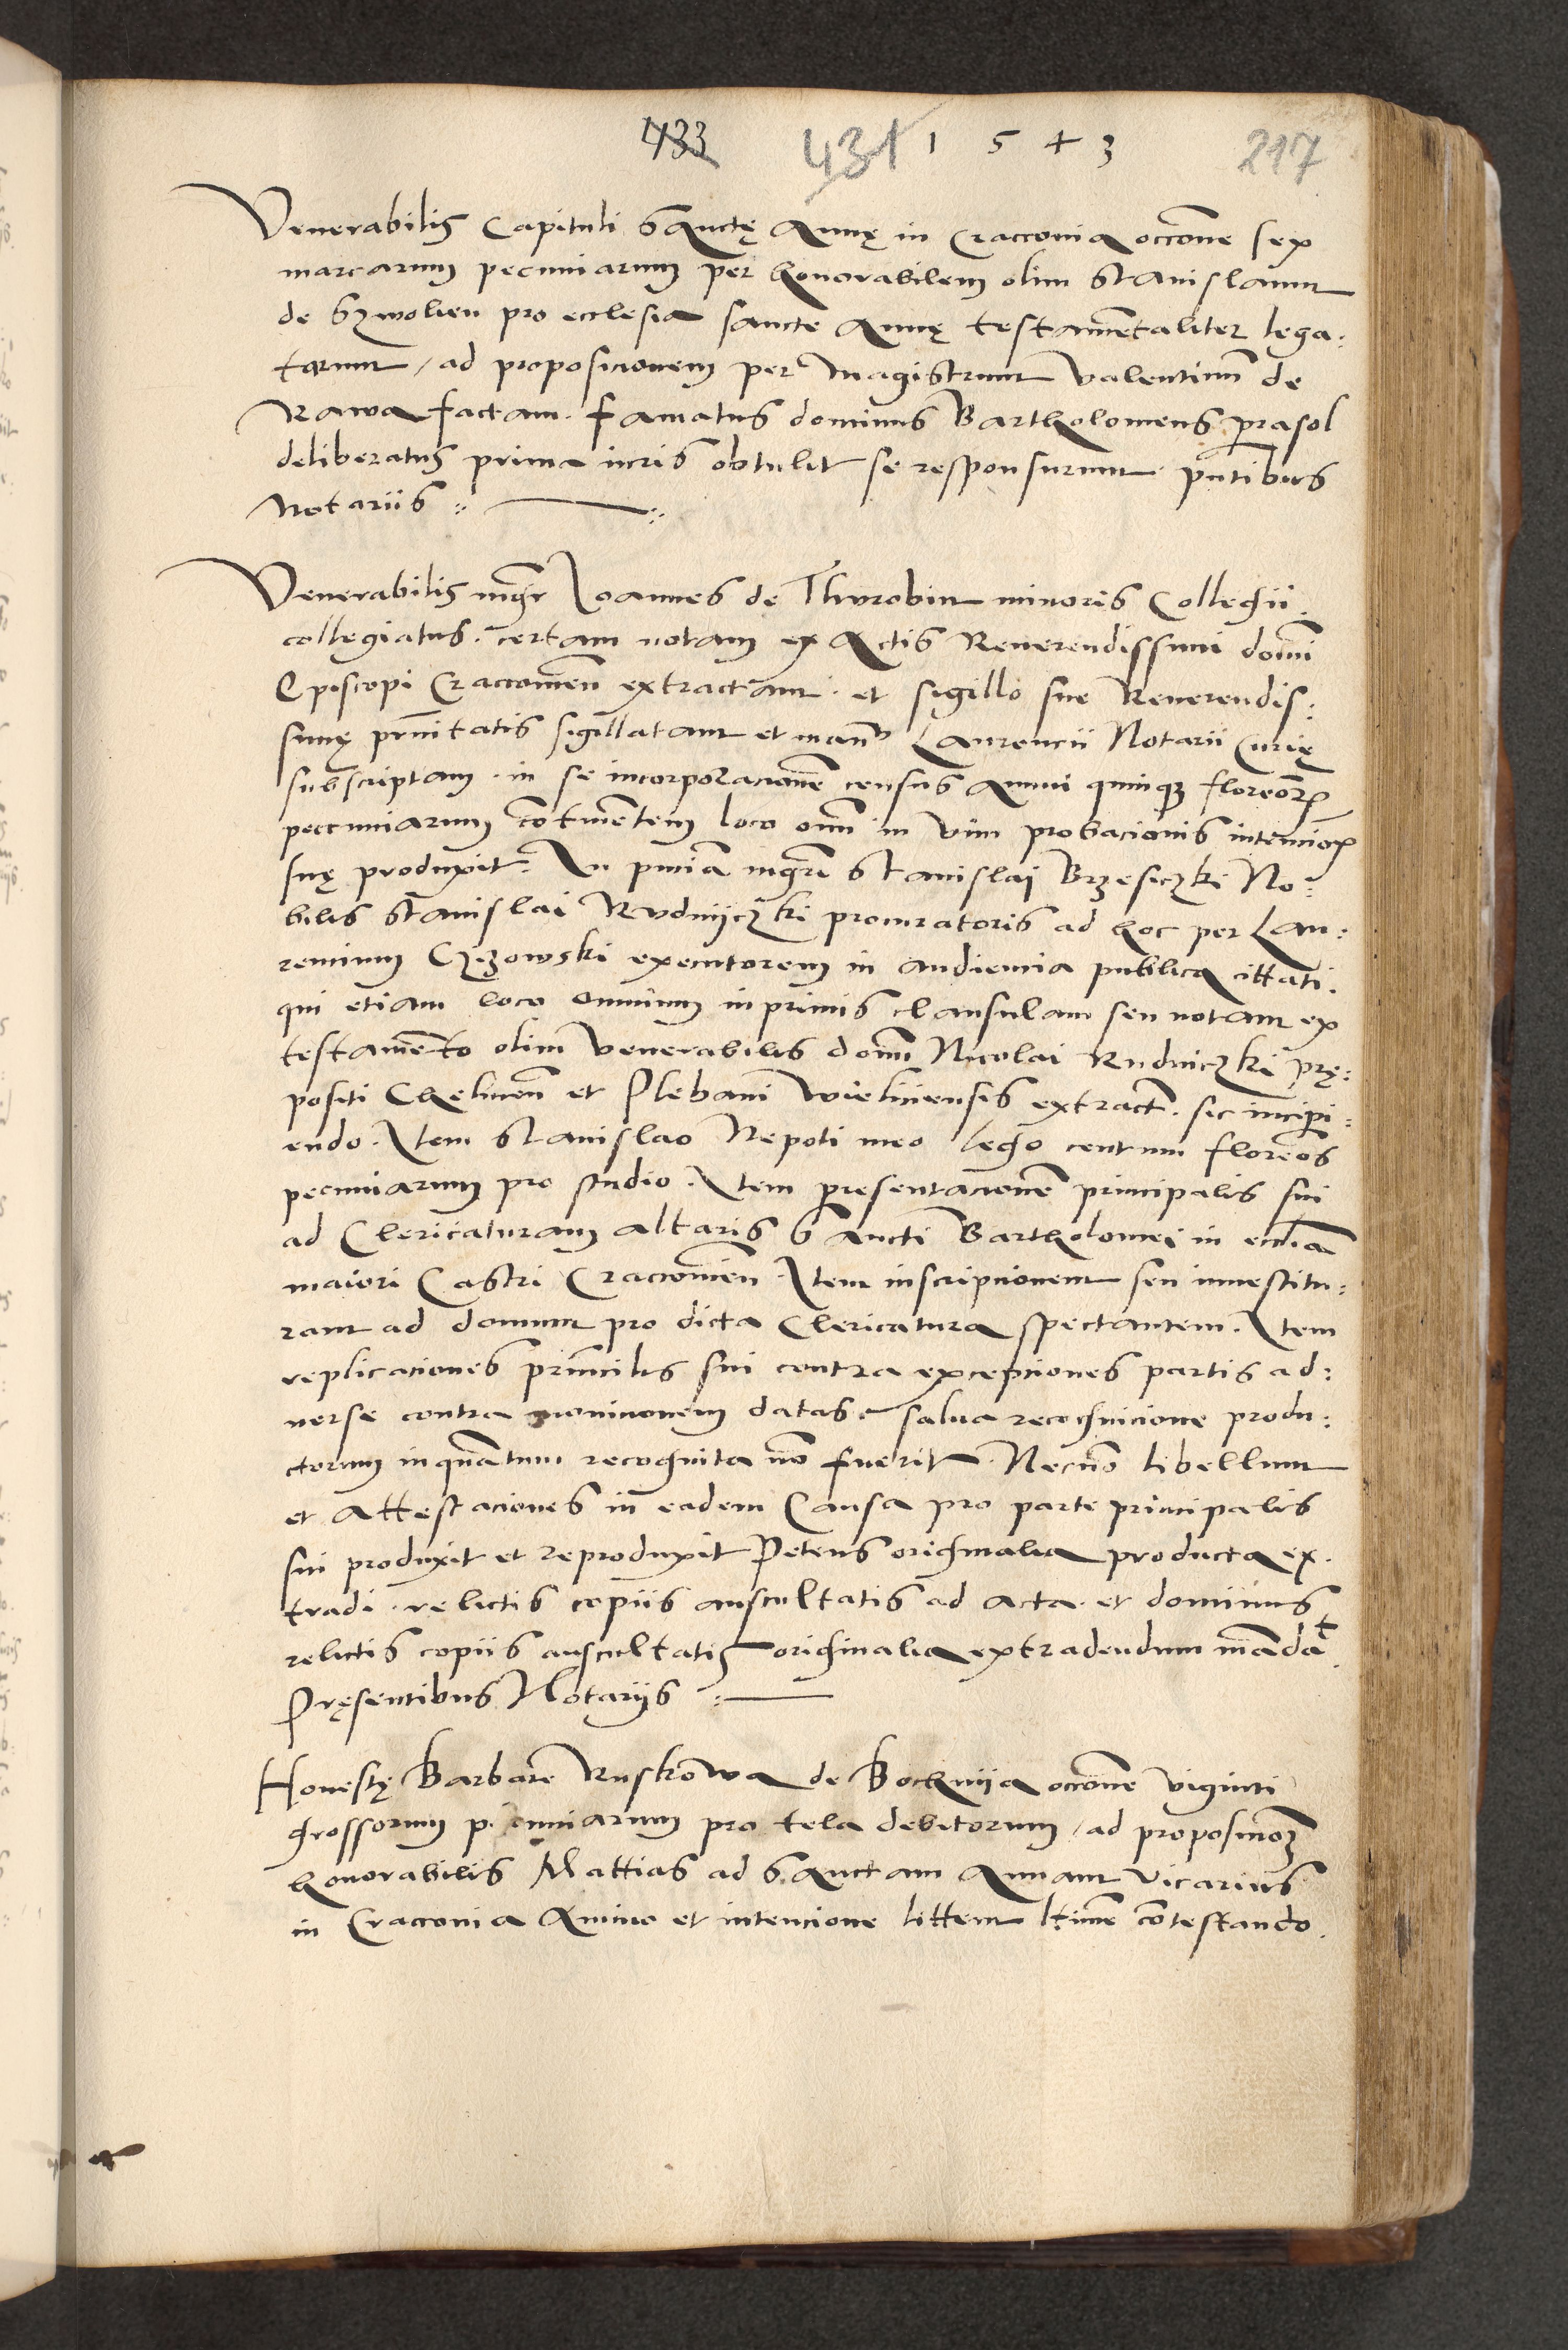 433 431 1 5 4 3 217
Venerabilis Capituli Sanctę Annę in Cracconia occone sex
marcarum pecuniarum per honorabilem olim Stanislaum
de Szwolien pro ecclesia sancte Annę testamentaliter lega:
tarum, ad proposicionem per Magistrum Valentinum de
Rawa factam. famatus dominus Bartholomeus prasol
deliberatus prima iuris obtulit se responsurum pntibus
Notariis
Venerabilis mgr Joannes de Thurobin minoris Collegii
collegiatus. certam notam ex Actis Reverendissimi domi
Episcopi Cracconien extractam. et sigillo sue Reverendis:
simę prnitatis sigillatam et manu Laurencii Notarii Curię
subscriptam. in se incorporacione census annui quinque florenor
peccuniarum contmentem loco omni in vim probacionis intencion
suę produxit. In pncia mgri Stanislai Brzesiczki No:
bilis Stanislai Rudnijczki procuratoris ad hoc per Lau:
rencium Czyzowski executorem in audiencia publica cittati.
qui etiam loco omnium inprimis clausulam seu notam ex
testamento olim Venerabilis domi Nicolai Rudniczki prę:
positi Chelmen et Plebani Wielinensis extract. sic incipi:
endo. Item Stanislao Nepoti meo lego centum florenos
pecuniarum pro studio. Item presentacione principalis sui
ad Clericaturam altaris Sancti Bartholomei in ecclia
maiori Castri Cracconien. Item inscripcionem seu inuestitu:
ram ad domum pro dicta Clericatura spectantem. Item
replicaciones princilis sui contra excepciones partis ad:
uerse contra monicionem datas. salua recognicione produ:
ctorum inquantum recognita non fuerit. Necno libellum
et Attestaciones in eadem Causa pro parte principalis
sui produxit et reproduxit Petens originalia producta ex
tradi. relictis copiis auscultatis ad acta. et dominus
relictis copiis auscultatis originalia extradendum mandat
Pręsentibus Notarijs
Honestę Barbare Ruskowa de Bochnija occone viginti
grossorum pecuniarum pro tela debitorum, ad proposicionem
honorabilis Mattias ad Sanctam Annam Vicarius
in Cracconia Animo et intencione littem ltime contestando.